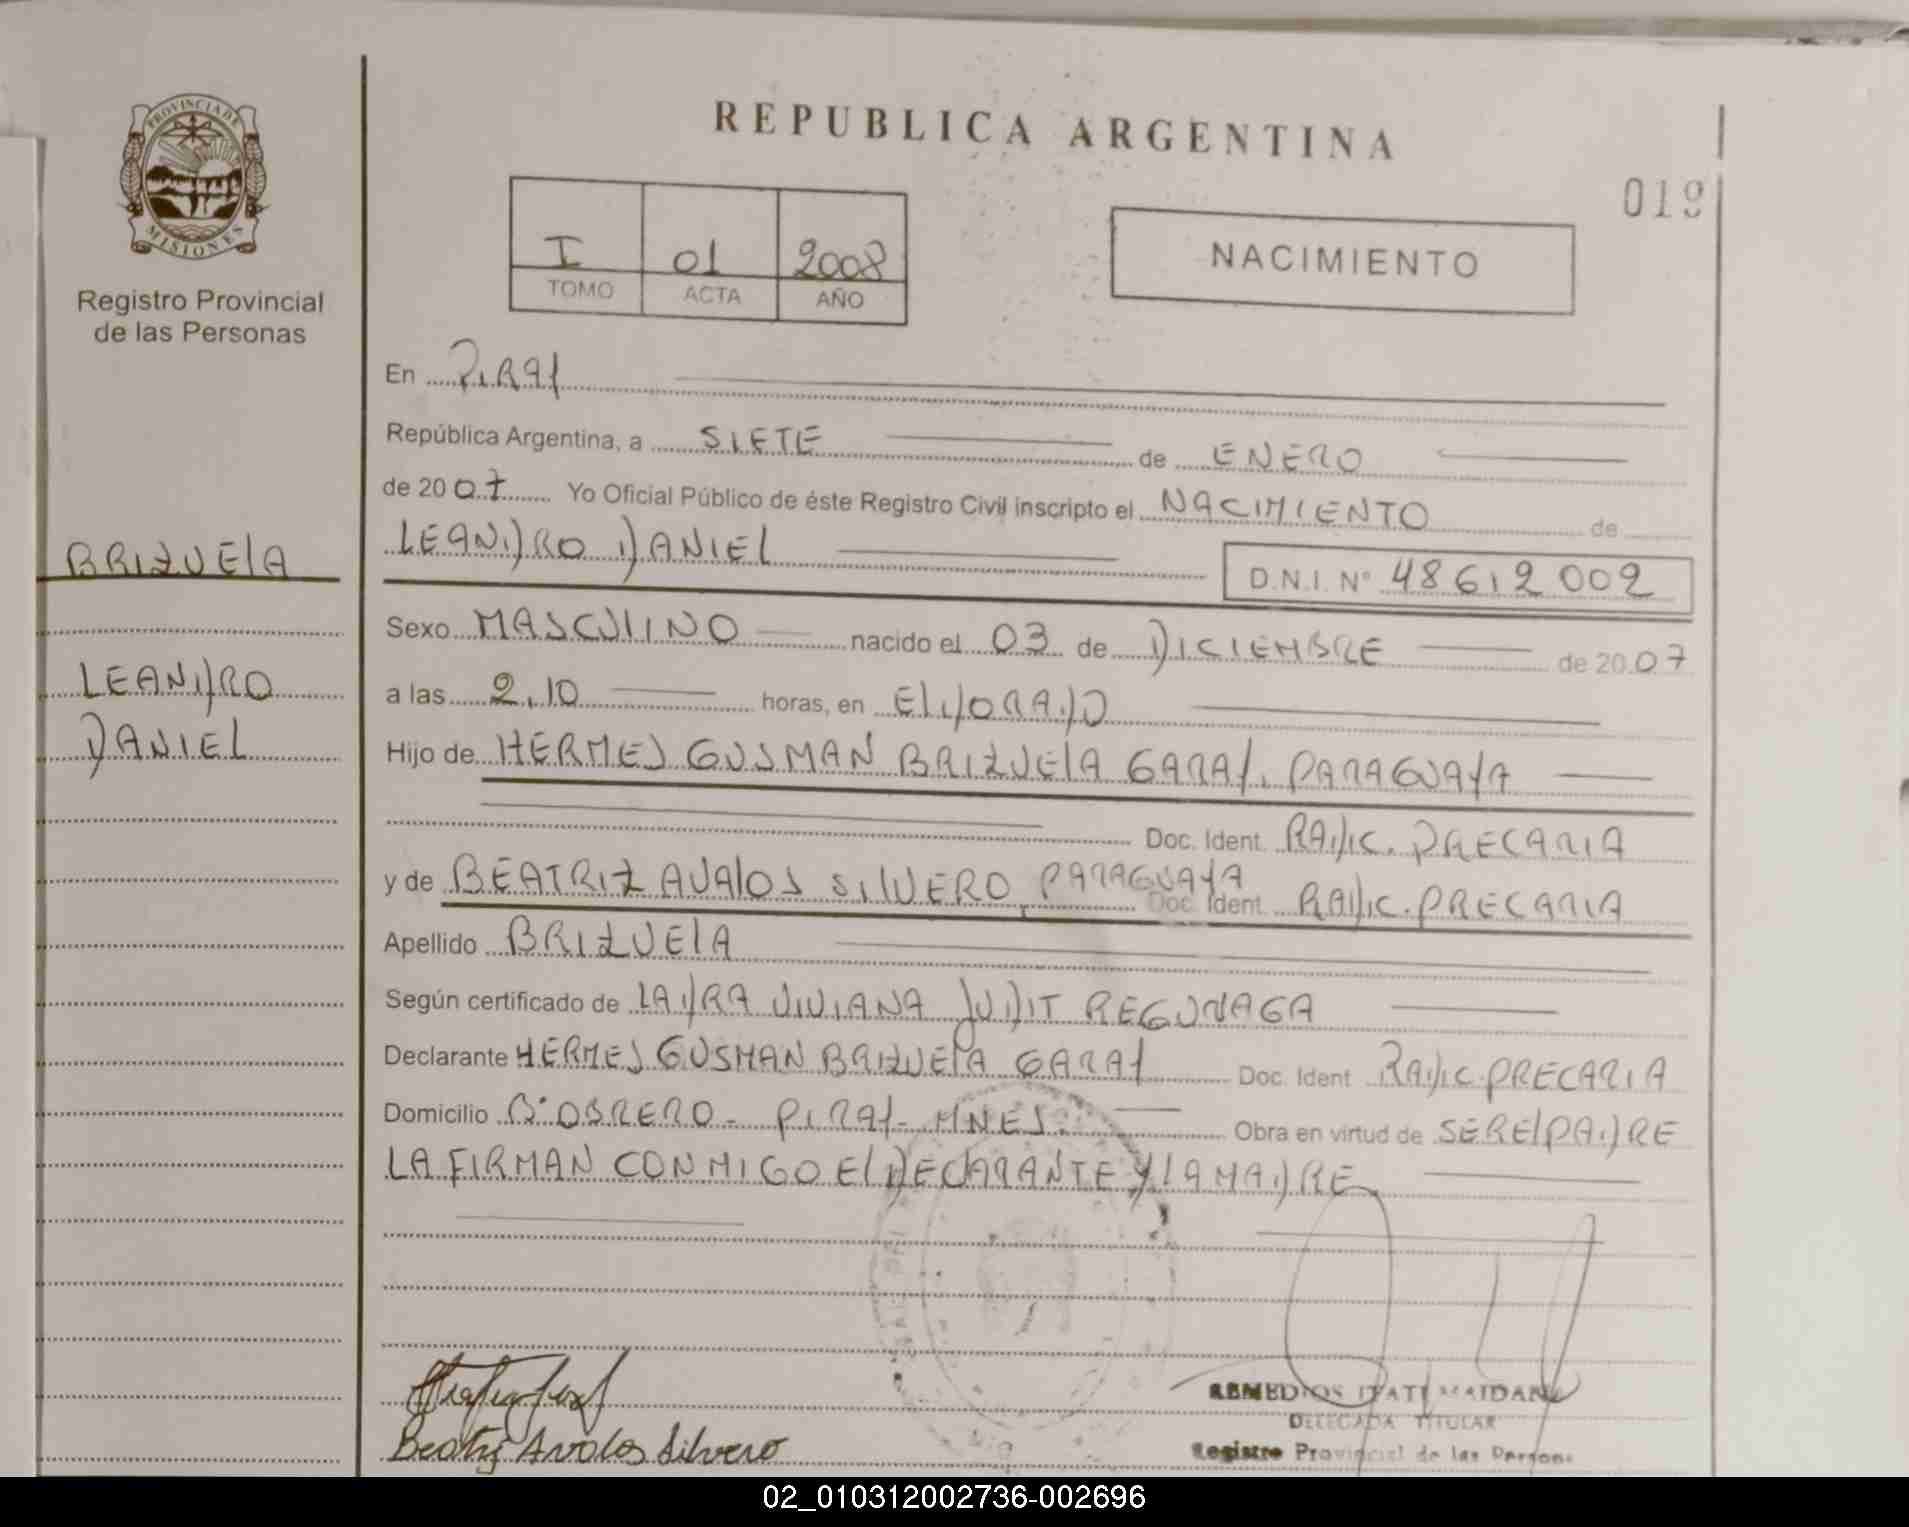 PROVINCIA DE
MISIONES
Registro Provincial
de las Personas
BRIZUELA
LEANDRO
DANIEL
REPUBLICA ARGENTINA
019
I 01 2008
TOMO ACTA AÑO
NACIMIENTO
En PIRAY
República Argentina, a SIETE de ENERO
de 20 07 Yo Oficial Público de éste Registro Civil inscripto el NACIMIENTO de
LEANDRO DANIEL D.N.I. N° 48612002
Sexo MASCULINO nacido el 03 de DICIEMBRE de 20 07
a las 2,10 horas, en ELDORADO
Hijo de HERMES GUSMAN BRIZUELA GARAY, PARAGUAYA
Doc. Ident. RADIC. PRECARIA
y de BEATRIZ AVALOS SILVERO, PARAGUAYA Doc. Ident. RADIC. PRECARIA
Apellido BRIZUELA
Según certificado de LADRA VIVIANA JUDIT REGUNAGA
Declarante HERMES GUSMAN BRIZUELA GARAY Doc. Ident. RADIC. PRECARIA
Domicilio B° OBRERO - PIRAY - MNES. Obra en virtud de SER EL PADRE
LA FIRMAN CONMIGO EL DECLARANTE Y LA MADRE
Beatriz Avalos Silvero
REMEDIOS ITATI MAIDANA
DELEGADA TITULAR
Registro Provincial de las Person
02_010312002736-002696